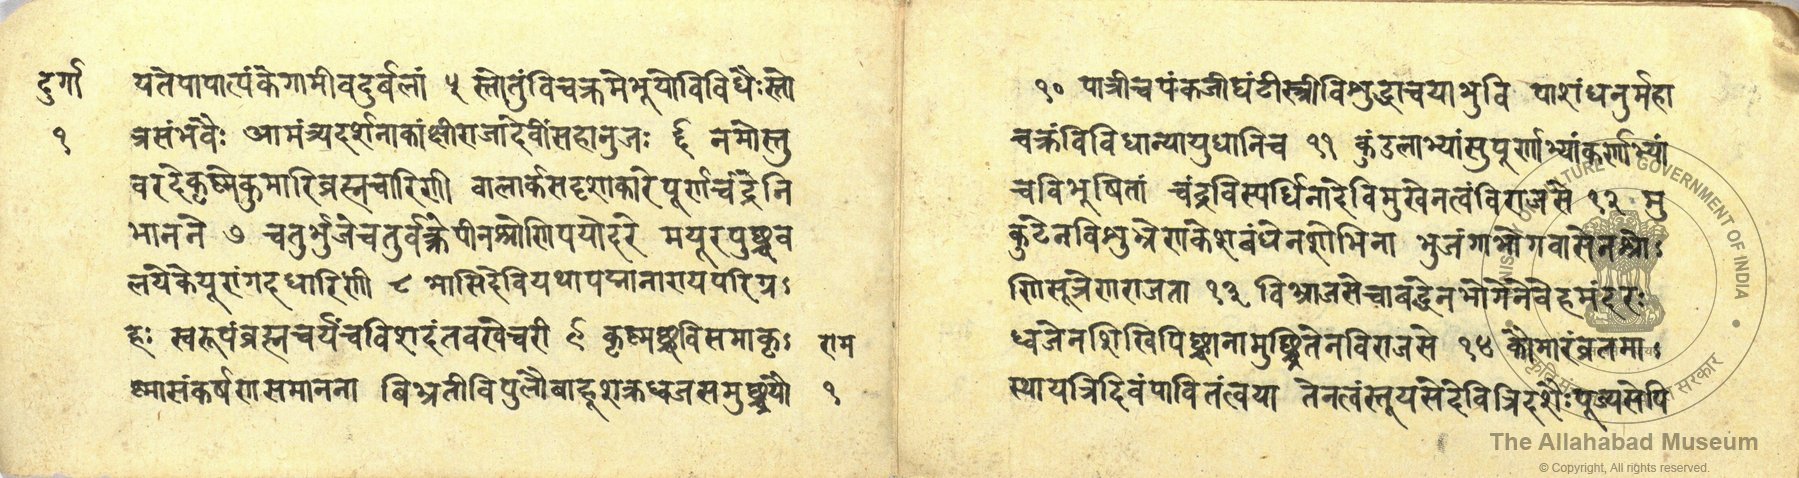 दुर्गा
१
यतेपापात्पंकेगामीवदुर्बलां ५ स्तोतुंविचक्रमेभूयोविविधैःस्तो
त्रसंभवैः आमंत्र्यदर्शनाकांक्षीराजादेवींसहानुजः ६ नमोस्तु
वरदेकृष्णेकुमारिब्रह्मचारिणी बालार्कसदृशाकारेपूर्णचंद्रनि
भानने ७ चतुर्भुजेचतुर्वक्त्रेपीनश्रोणिपयोदरे मयूरपुच्छव
लयेकेयूरांगदधारिणी ८ भासिदेवियथापद्मानारायपरिग्र
हः स्वरूपंब्रह्मचर्यंचविशदंतवखेचरी ९ कृष्णच्छविसमाकृ
ष्णासंकर्षणसमानना बिभ्रतीविपुलौबाहूशक्रध्वजसमुच्छ्रयौ
राम
१
१० पात्रीचपंकजीघंटीस्त्रीविशुद्धाचयाभुवि पाशंधनुर्महा
चक्रंविविधान्यायुधानिच ११ कुंडलाभ्यांसुपूर्णाभ्यांकर्णाभ्यां
चविभूषितां चंद्रविस्पर्धिनादेविमुखेनत्वंविराजसे १२ मु
कुटेनविशुभ्रेणकेशबंधेनशोभिना भुजंगाभोगवासेनश्रो
णिसूत्रेणराजता १३ विभ्राजसेचाबद्धेनभोगेनैवेहमंदरः
ध्वजेनशिखिपिच्छानामुच्छ्रितेनविराजसे १४ कौमारंव्रतमा
स्थायत्रिदिवंपावितंत्वया तेनत्वंस्तूयसेदेवित्रिदशैःपूज्यसेपि
The Allahabad Museum
© Copyright, All rights reserved.